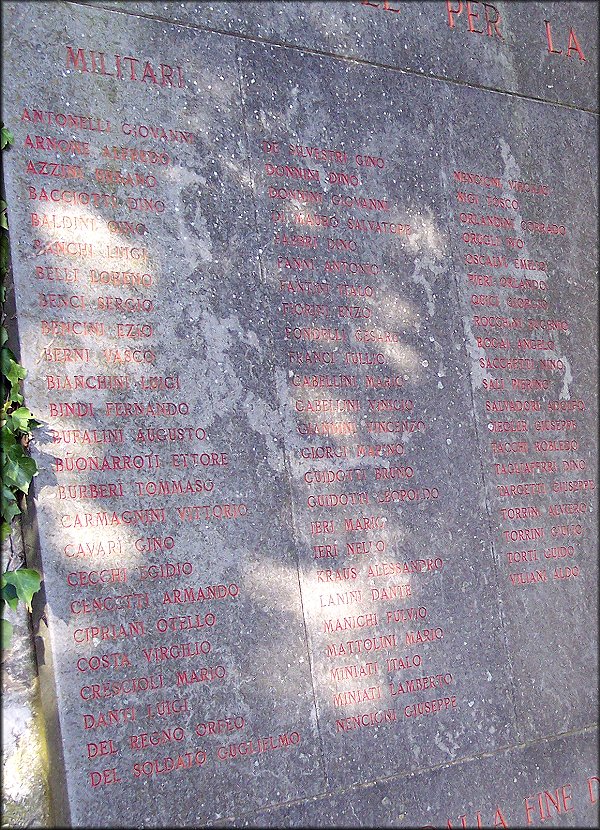 PER LA
MILITARI
ANTONELLI GIOVANNI
ARNONE ALFREDO
AZZINI CESANO
BACCIOTTI DINO
BALDINI GINO
BIANCHI LUIGI
BELLI LORENO
BENCI SERGIO
BENCINI EZIO
BERNI VASCO
BIANCHINI LUIGI
BINDI FERNANDO
BUFALINI AUGUSTO
BUONARROTI ETTORE
BURBERI TOMMASO
CARMAGNINI VITTORIO
CAVARI GINO
CECCHI EGIDIO
CENCETTI ARMANDO
CIPRIANI OTELLO
COSTA VIRGILIO
CRESCIOLI MARIO
DANTI LUIGI
DEL REGNO ORFEO
DEL SOLDATO GUGLIELMO
DE SILVESTRI GINO
DONNINI DINO
DONNINI GIOVANNI
DI MAURO SALVATORE
FABBRI DINO
FANNI ANTONIO
FANTINI ITALO
FIORINI ENZO
FONDELLI CESARE
FRANCI TULLIO
GABELLINI MARIO
GABELLINI VINICIO
GIANNINI VINCENZO
GIORGI MARINO
GUIDOTTI BRUNO
GUIDOTTI LEOPOLDO
IERI MARIO
IERI NELLO
KRAUS ALESSANDRO
LANINI DANTE
MANICHI FULVIO
MATTOLINI MARIO
MINIATI ITALO
MINIATI LAMBERTO
NENCIONI GIUSEPPE
NENCIONI VIRGILIO
NIGI TOSCO
ORLANDINI CORRADO
PIERI ORLANDO
QUICI GIORGIO
ROCCHINI EUGENIO
ROGAI ANGELO
SACCHETTI NINO
SALI PIERINO
SALVADORI ADOLFO
SIEGLER GIUSEPPE
TACCHI ROBLEDO
TAGLIAFERRI DINO
TARGETTI GIUSEPPE
TORRINI ALVIERO
TORRINI GIULIO
TORTI GUIDO
VILIANI ALDO
DALLA FINE D